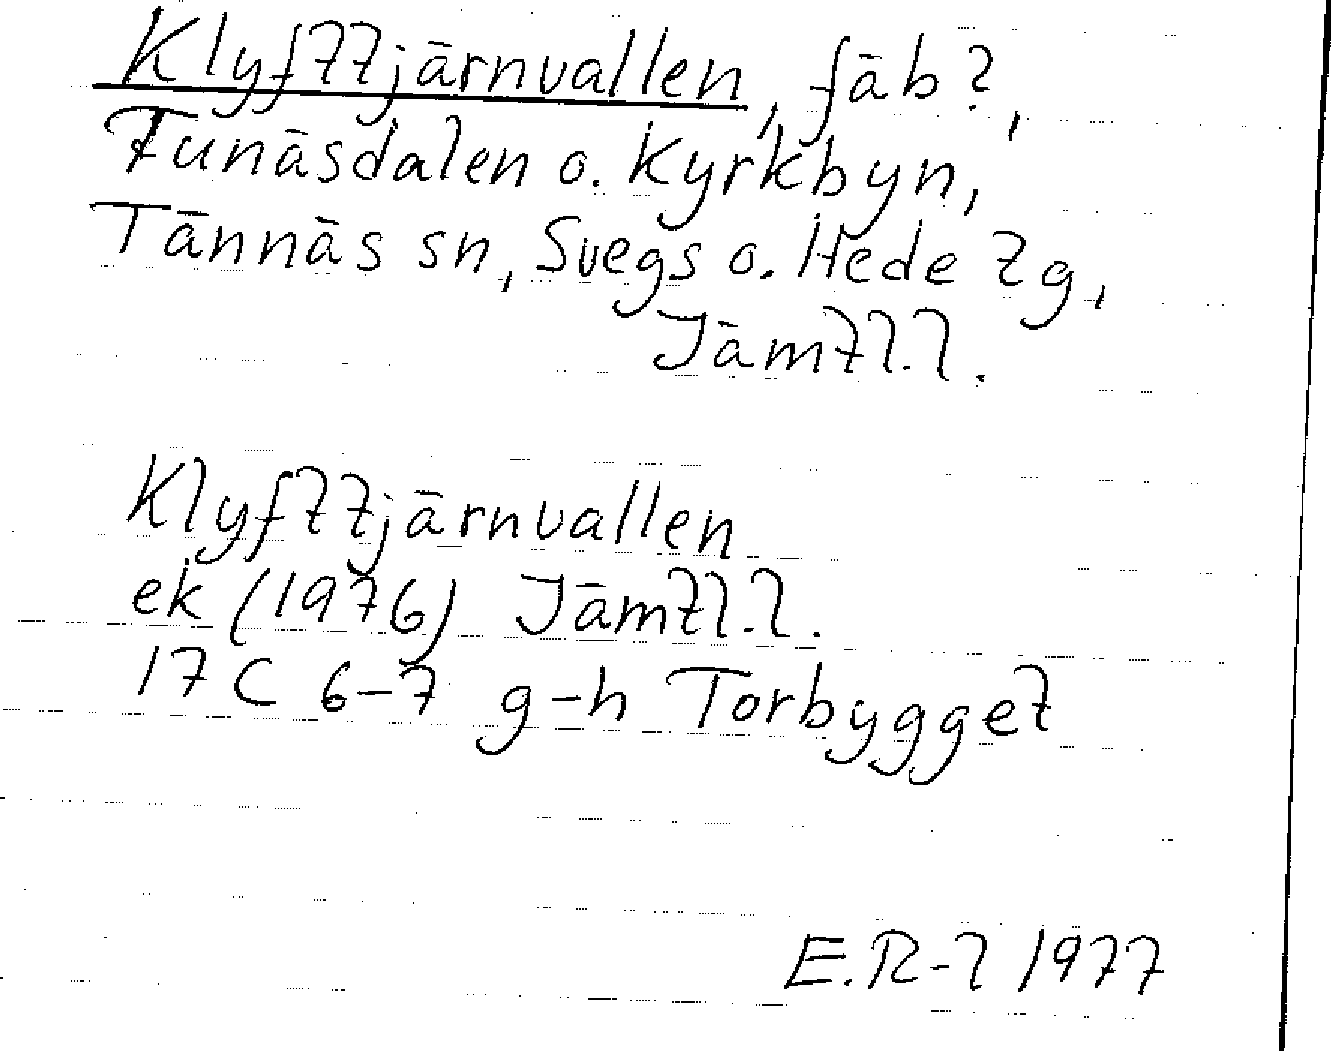 Klyfttjärnvallen, fäb?,
Funäsdalen o. Kyrkbyn,
Tännäs sn, Svegs o. Hede tg,
Jämtl.l.
Klyfttjärnvallen
ek (1976) Jämtl.l.
17 C 6-7 g-h Torbygget
E.R-l 1977